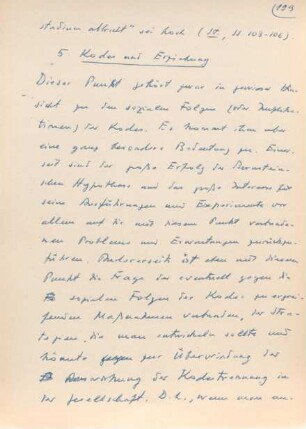 (199
studium abbricht" sei hoch (IV, SS. 103-106).
5. Kodes und Erziehung
Dieser Punkt gehört zwar in gewisser Hin-
sicht zu den sozialen Folgen (oder Implika-
tionen) der Kodes. Es kommt ihm aber
eine ganz besondere Bedeutung zu. Einer-
seits sind der große Erfolg der Bernstein-
schen Hypothese und das große Interesse für
seine Ausführungen und Experimente vor
allem auf die mit diesem Punkt verbunde-
nen Probleme und Erwartungen zurückzu-
führen. Andererseits ist eben mit diesem
Punkt die Frage der eventuell gegen die
sozialen Folgen der Kodes zu ergrei-
fenden Maßnahmen verbunden, der Stra-
tegien, die man entwickeln sollte und
könnte zur Überwindung der
Auswirkung der Kodetrennung in
der Gesellschaft. D.h., wenn man an-